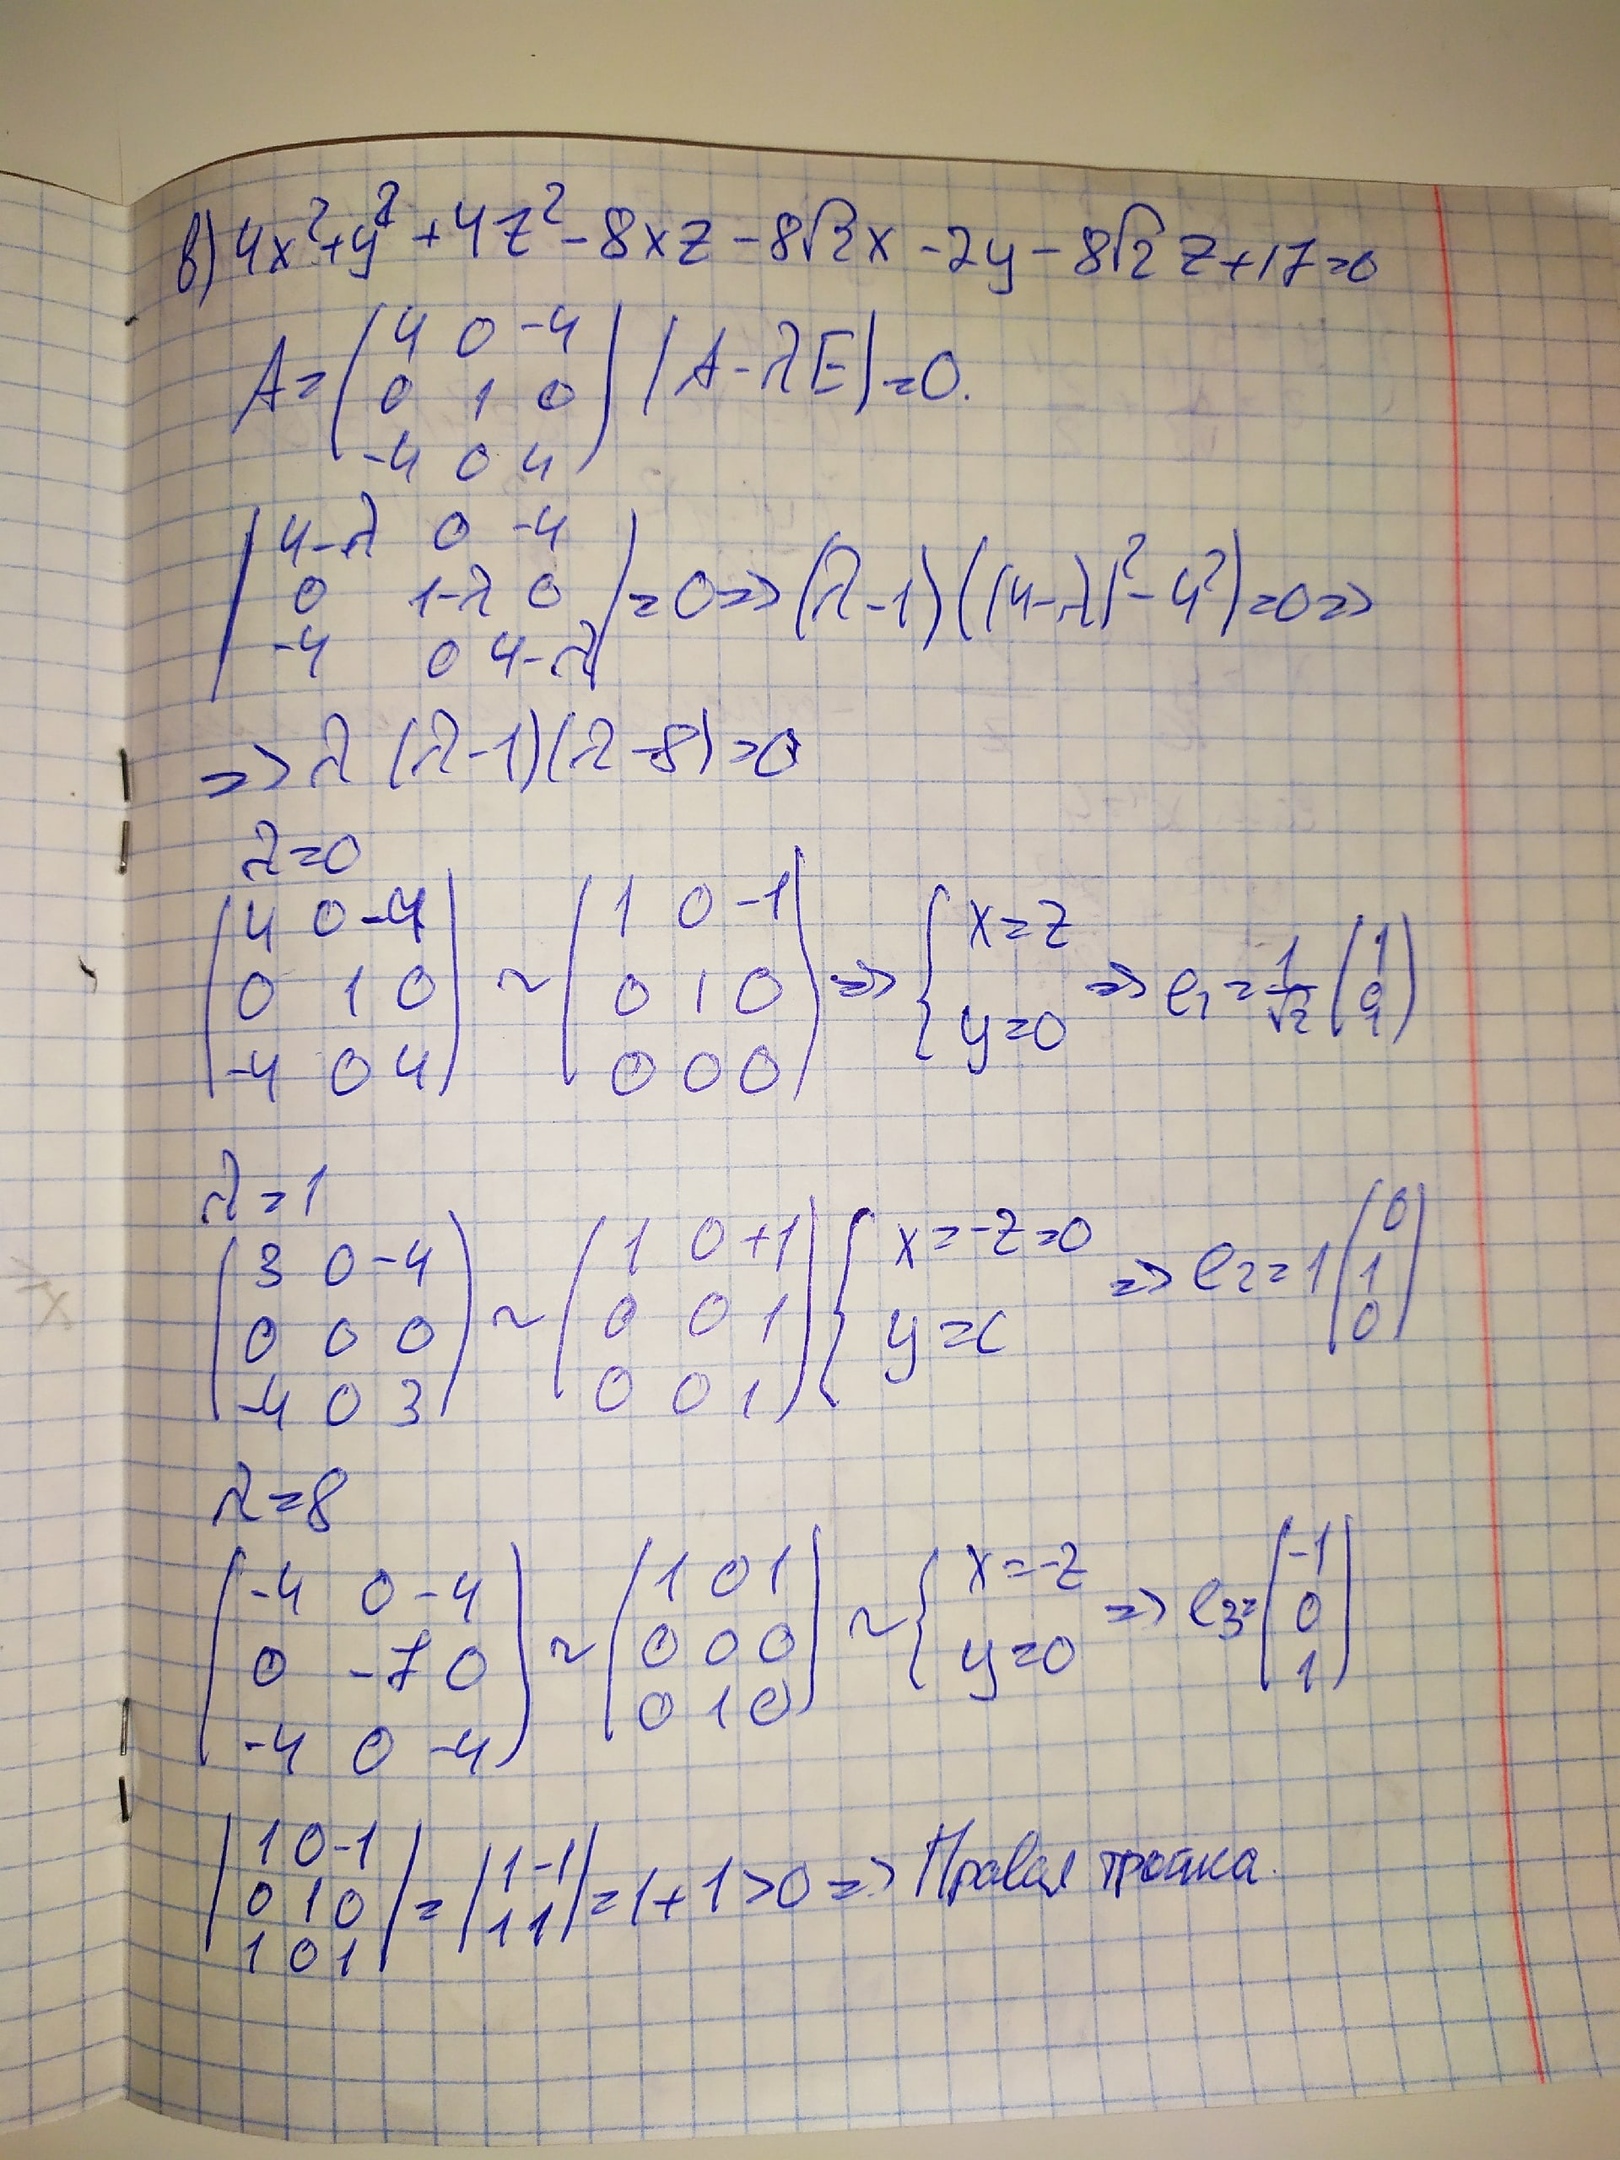 в) 4x²+y²+4z²-8xz-8√2x-2y-8√2z+17=0
A=(4 0 -4; 0 1 0; -4 0 4) |A-λE|=0.
|4-λ 0 -4; 0 1-λ 0; -4 0 4-λ|=0=>(λ-1)((4-λ)²-4²)=0=>
=>λ(λ-1)(λ-8)=0
λ=0
(4 0 -4; 0 1 0; -4 0 4) ~ (1 0 -1; 0 1 0; 0 0 0) => {x=z; y=0 => e₁=1/√2 (1; 0; 1)
λ=1
(3 0 -4; 0 0 0; -4 0 3) ~ (1 0 +1; 0 0 1; 0 0 1) {x=-z=0; y=c => e₂=1(0; 1; 0)
λ=8
(-4 0 -4; 0 -7 0; -4 0 -4) ~ (1 0 1; 0 0 0; 0 1 0) ~ {x=-z; y=0 => e₃=(-1; 0; 1)
|1 0 -1; 0 1 0; 1 0 1|=|1 -1; 1 1|=1+1>0=> Правая тройка.